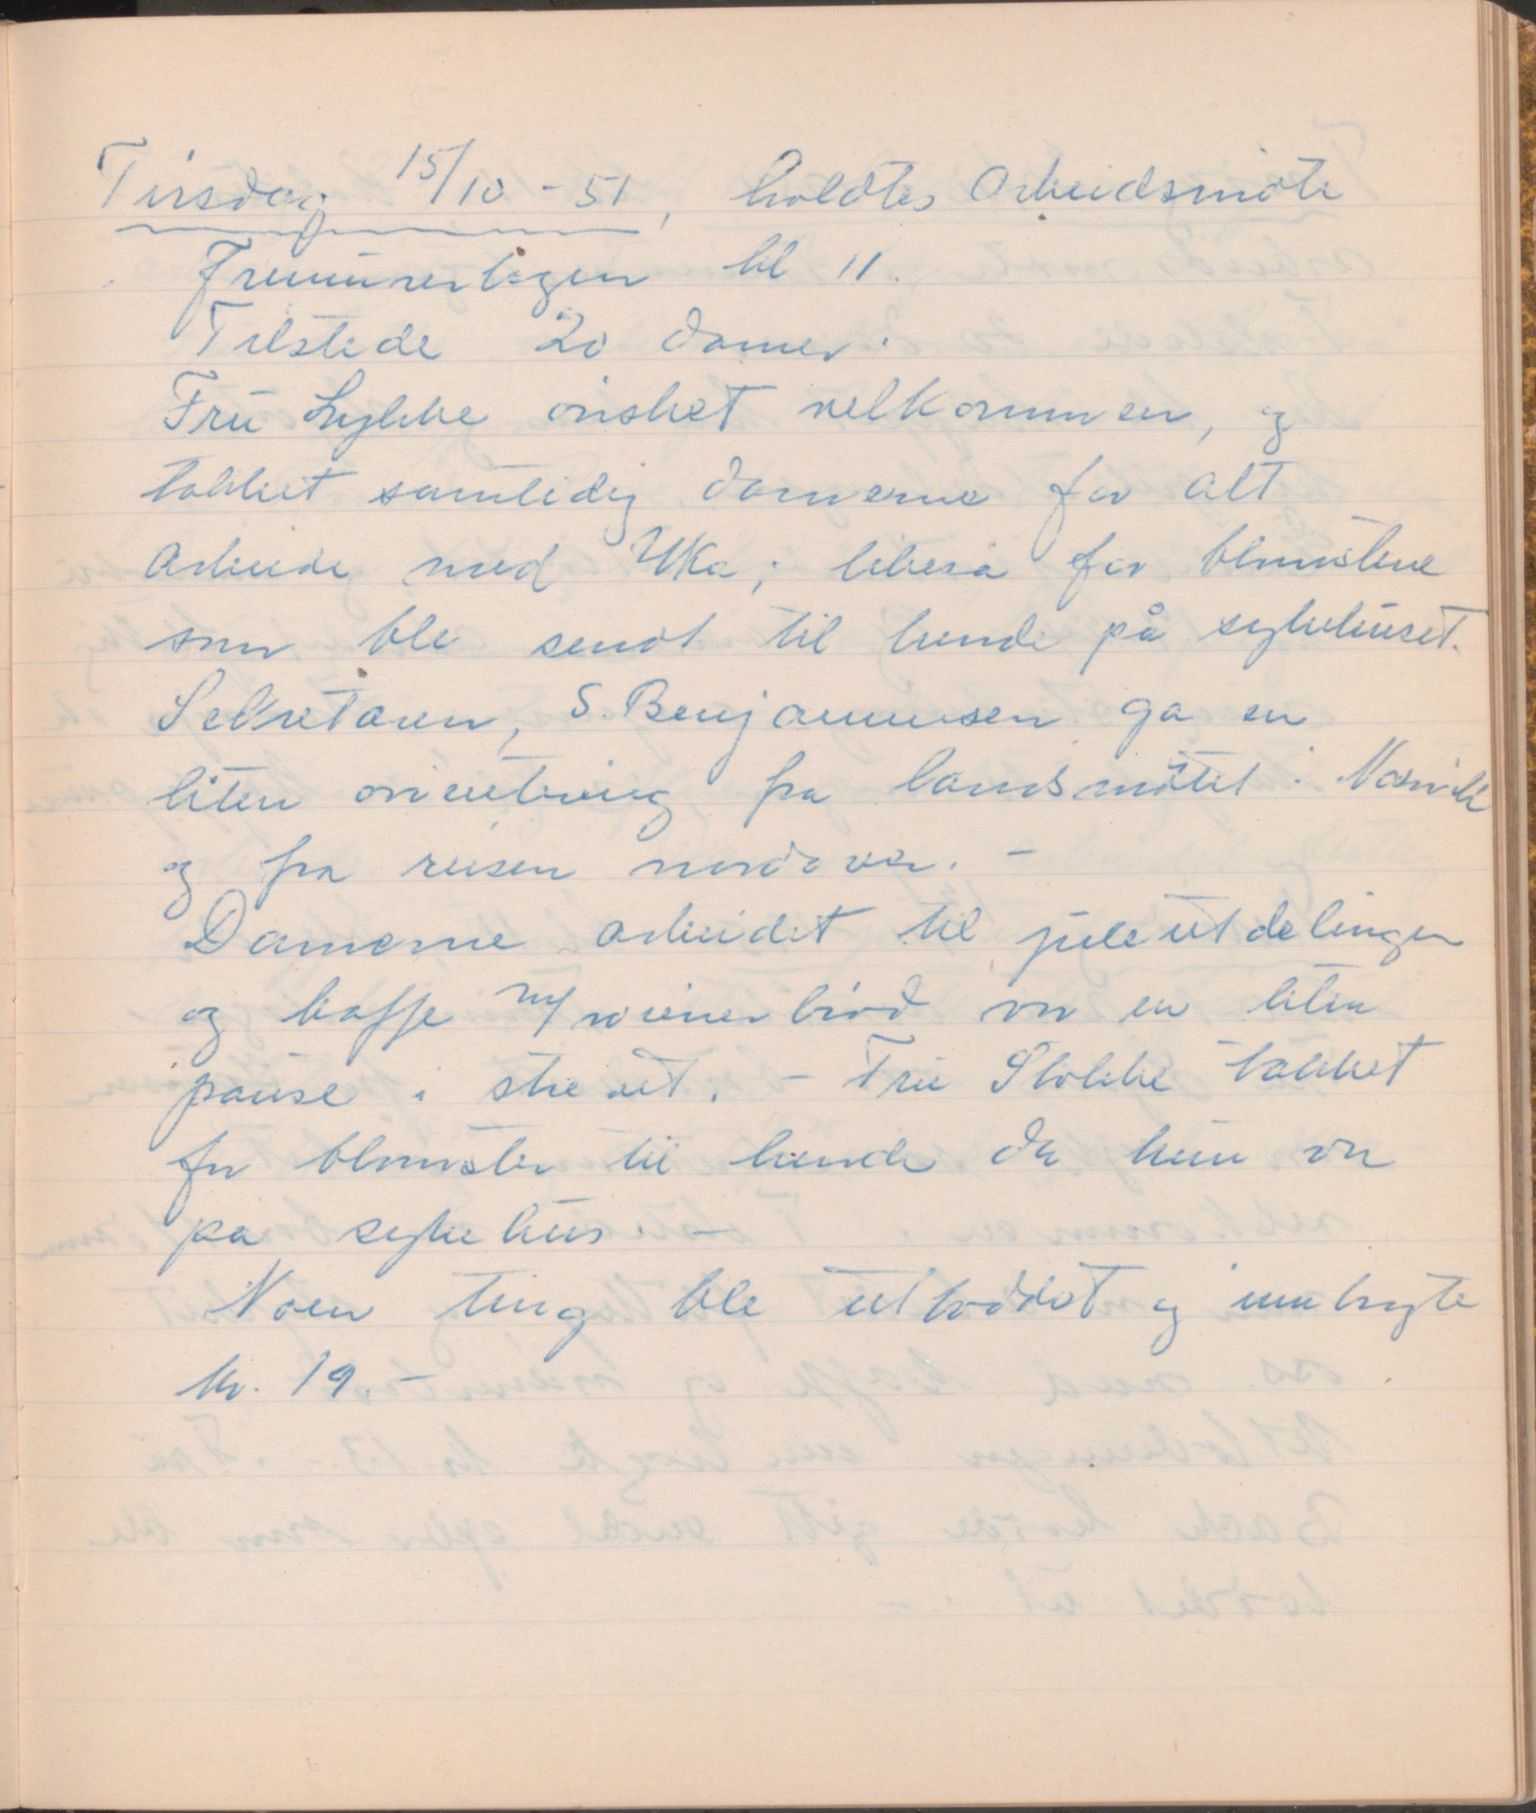 Tirsdag 15/10 - 51, holdtes Arbeidsmöte
kl 11.
Tilstede 20 damer.
Frü Lykke önsket velkommen, og
takket samtidig damerne for alt
Arbeide med Uka; likeså for blomstene
som ble sendt til hende på sykehüset.
Sekretæren, S. Benjaminsen ga en
liten orientering fra landsmötet i Narvik
og fra reisen nordover. -
Damerne arbeidet til jüleütdelingen
og kaffe m/ wienerbröd var en liten
paüse i strevet. - Frü Stokke takket
for blomster til hende da hün var
på sykehüs. -
Noen ting ble ütloddet og innbragte
kr. 19.-